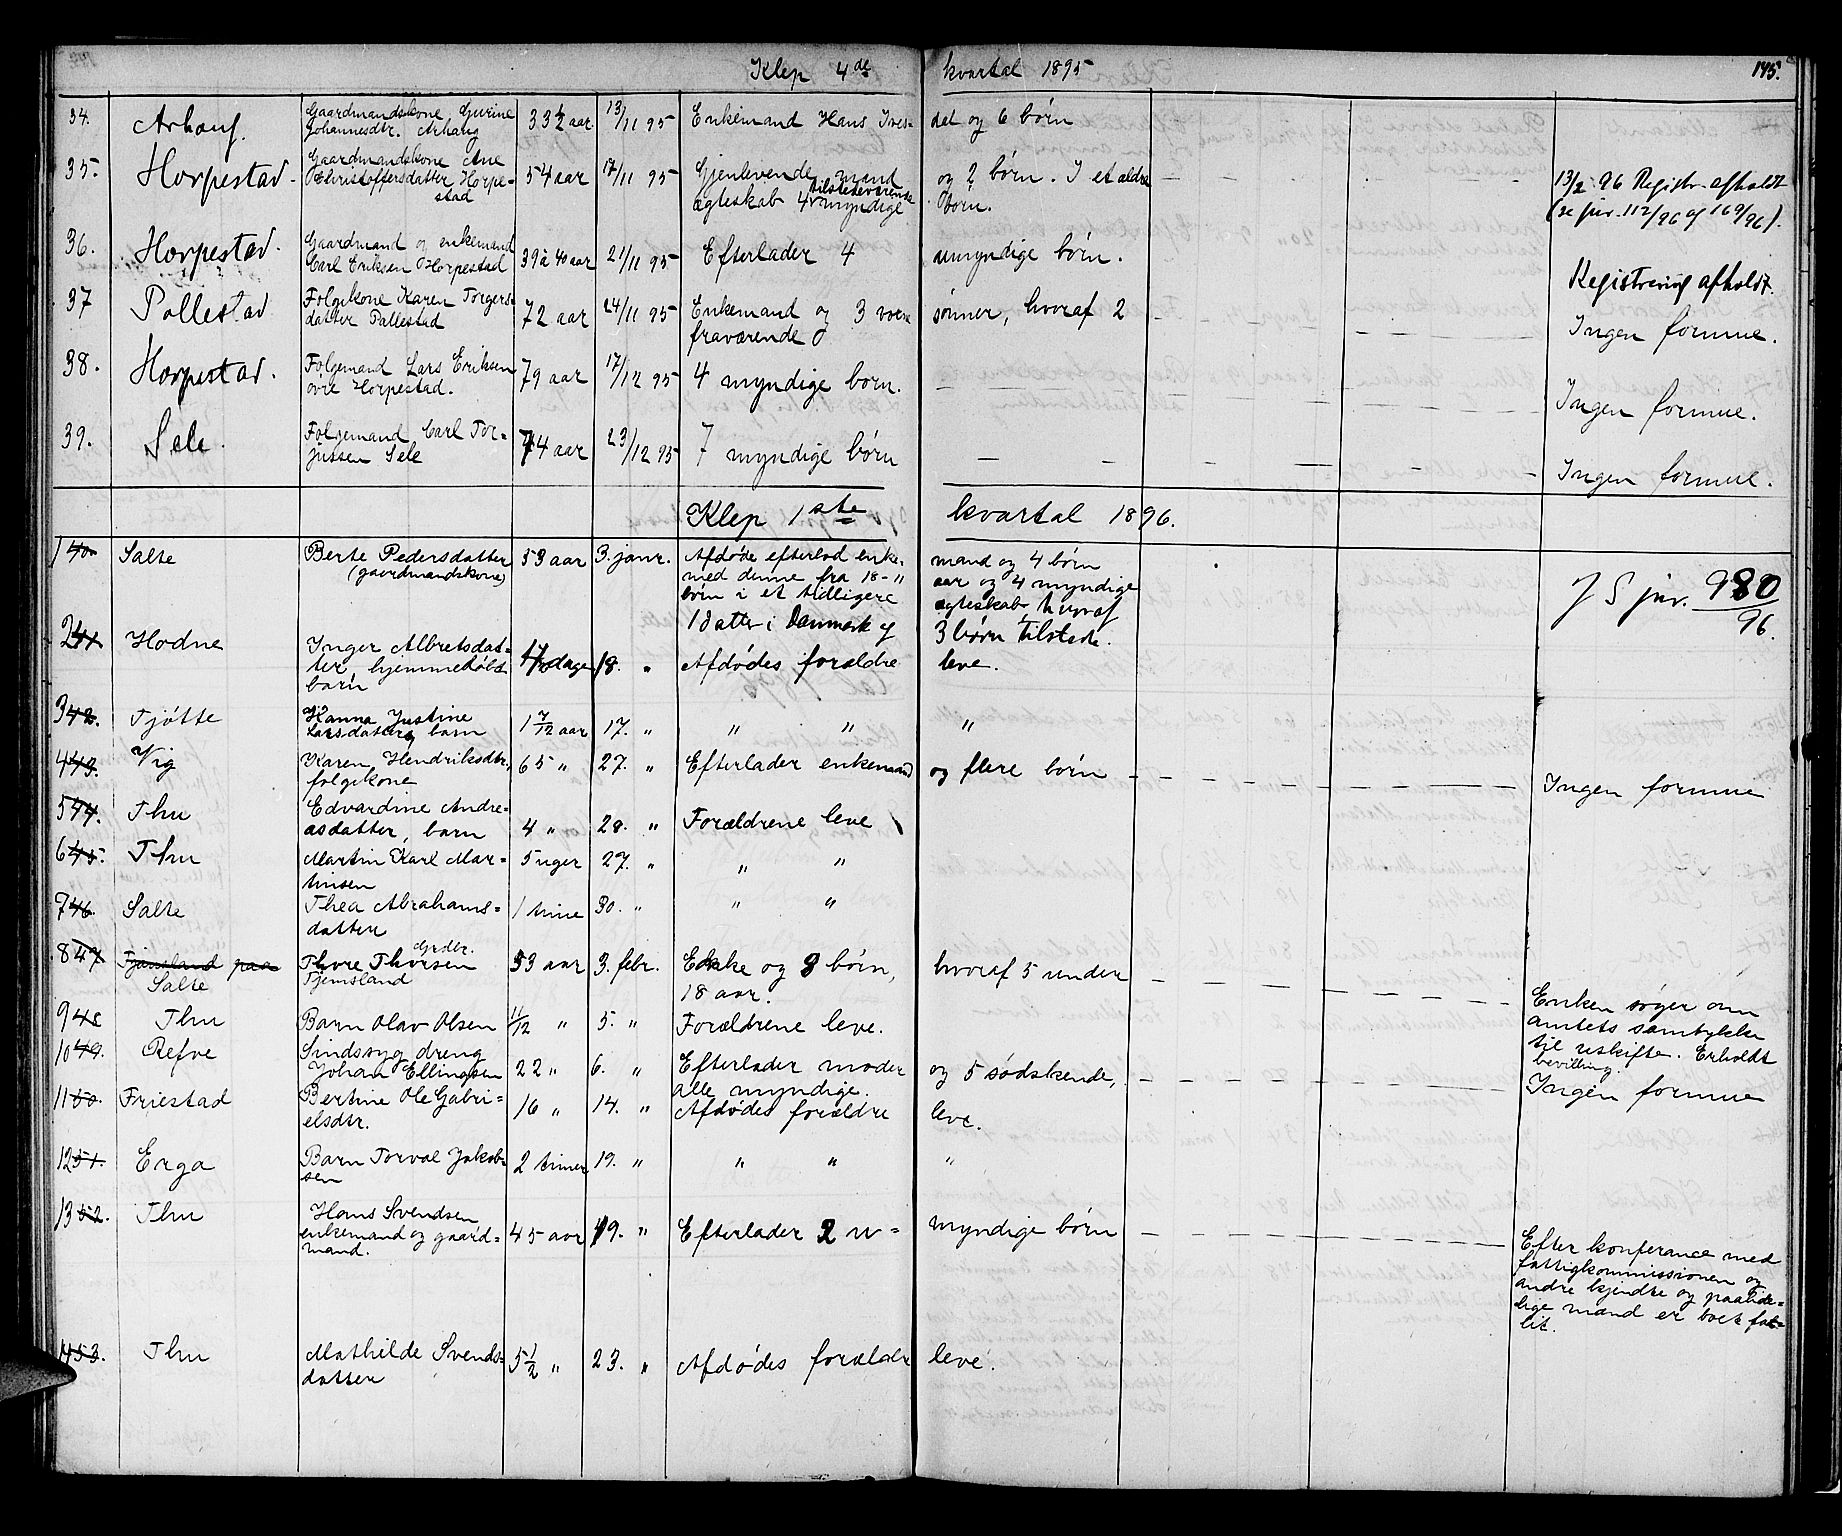 Klep 4de kvartal 1895 145.
34. Arhaug. Gaardmandskone Gurine Johannesdtr. Arhaug 33½ aar. 13/11 95 Enkemand Hans Ives- det og 6 børn
35. Horpestad. Gaardmandskone Ane Christoffersdatter Horpe- stad 54 aar 17/11 95 Gjenlevende mand og 2 børn. I et ældre
ægteskab 4 tilstedeværende myndige børn. 13/2 96 Registr. afholdt
(se jur. 112/96 og 169/96).
36. Horpestad. Gaardmand og enkemand Carl Eriksen Horpestad 39 à 40 aar 21/11 95 Efterlader 4 umyndige børn.
Registrering afholdt.
37 Pollestad Folgekone Karen Torgers- datter Pollestad 72 aar 24/11 95 Enkemand og 3 voxne sønner, hvoraf 2
fraværende Ingen formue.
38. Horpestad. Folgemand Lars Eriksen øvre Horpestad. 79 aar 17/12 95 4 myndige børn. Ingen formue.
39. Sele. Folgemand Carl Tor- jussen Sele 74 aar 23/12 95 7 myndige børn Ingen formue.
Klep 1ste kvartal 1896.
1 40. Salte Berte Pedersdatter (gaardmandskone) 53 aar 3. janr. Afdøde efterlod enke- mand og 4 børn
med denne fra 18-" aar og 4 myndige
børn i et tidligere ægteskab, hvoraf
1 datter i Danmark og 3 børn tilstede.
7 S jur. 980/96.
2 41 Hodne Inger Albretsdat- ter, hjemmedøbt barn dage 18. " Afdødes forældre leve.
3 42. Tjøtte Hanna Justine Larsdatter, barn 1 7/12 aar 17. " " " "
4 43. Vig Karen Hendriksdtr., folgekone 65 " 27. " Efterlader enkemand og flere børn Ingen formue
5 44. Thu Edvardine Andre- asdatter, barn 4 " 28. " Forældrene leve
6 45. Thu Martin Karl Mar- tinsen 5 uger 27. " " "
7 46. Salte Thea Abrahams- datter 1 time 30. " " "
8 47 Tjemsland paa Salte Grdbr. Thore Thorsen Tjemsland 53 aar 3. febr. Enke og 8 børn, hvoraf 5 under
18 aar. Enken søger om
amtets samtykke
til uskifte. Erholdt
bevilling.
9 48 Thu Barn Olav Olsen 11/12 " 5. " Forældrene leve.
10 49. Refve Sindssyg dreng Johan Ellingsen 22 " 6. " Efterlader moder og 5 sødskende,
alle myndige. Ingen formue
11 50. Friestad Bertine Ole Gabri- elsdtr. 16 " 14. " Afdødes forældre leve.
12 51. Erga Barn Torval Jakob- sen 2 timer 19. " " " "
13 52. Thu Hans Svendsen enkemand og gaard- mand. 45 aar 19. " Efterlader 2 u- myndige børn
Efter konferance med
fattigkommissionen og
andre kjendte og paalide-
lige mænd er boet fal-
lit.
14 53. Thu Mathilde Svends- datter 5½ " 23. " Afdødes forældre leve.